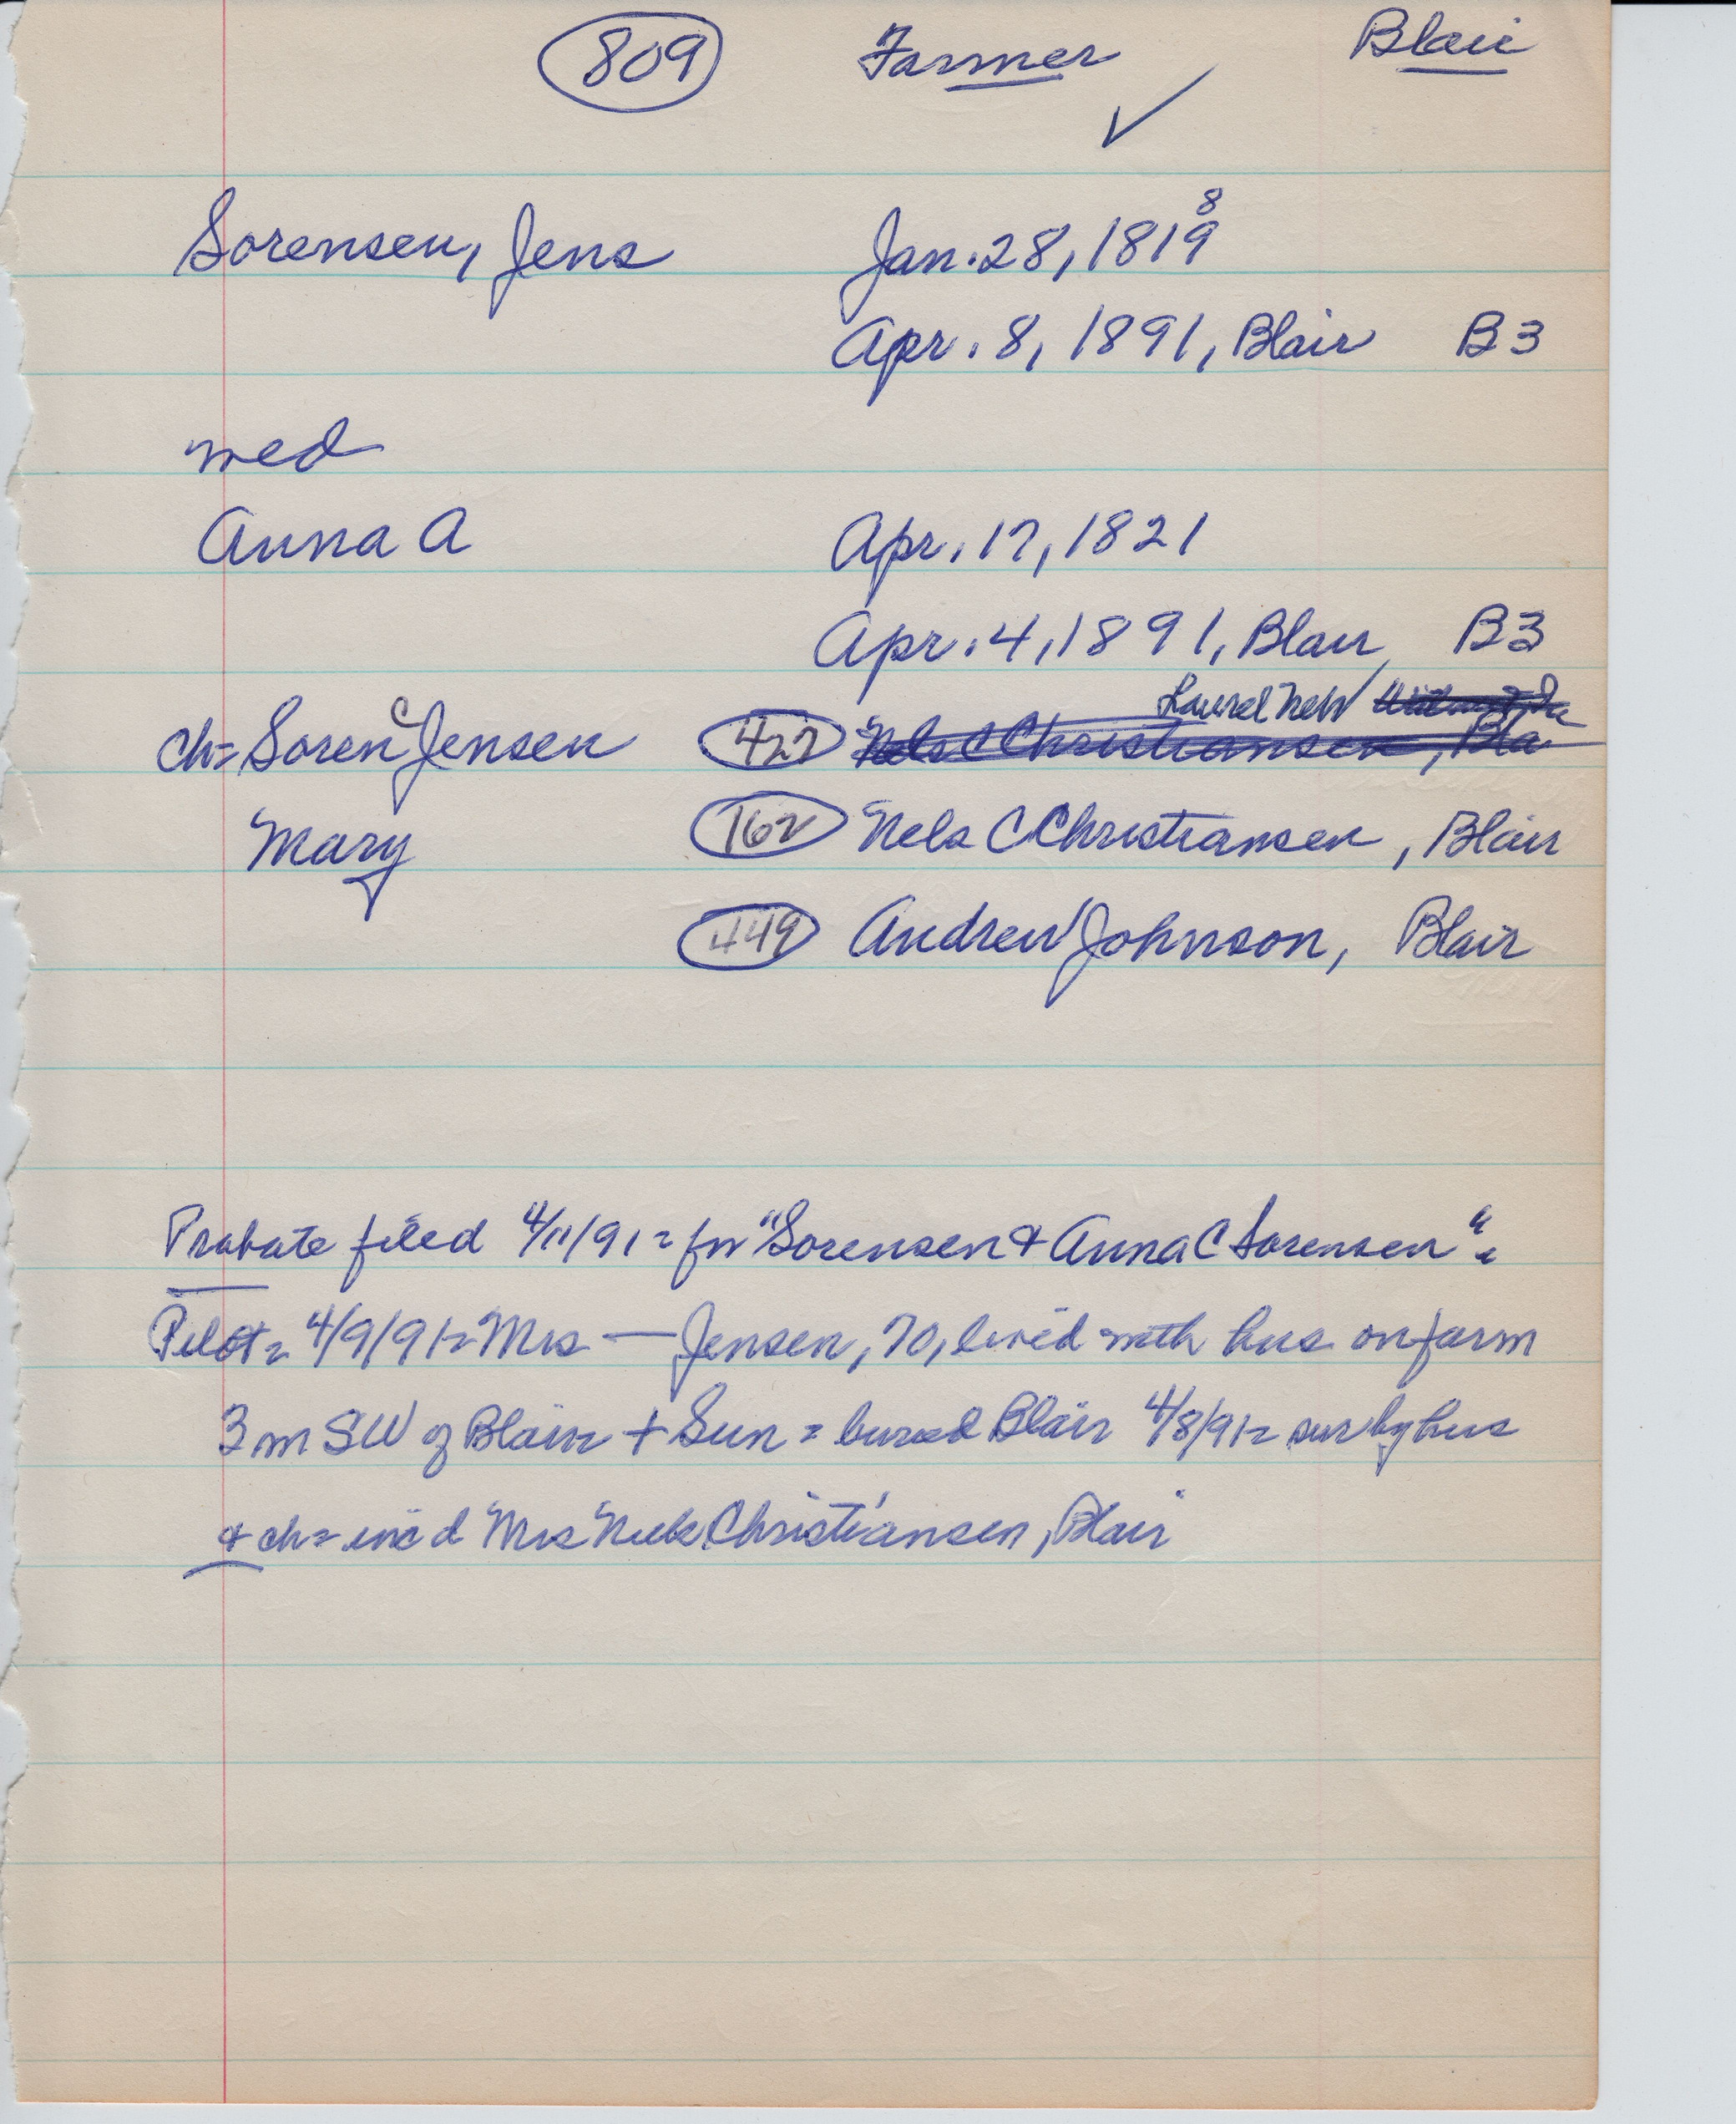 809 Farmer Blair
✓
8
Sorensen, Jens Jan. 28, 1819
Apr. 8, 1891, Blair B3
med
Anna A Apr. 17, 1821
Apr. 4, 1891, Blair B3
Laurel Nebr
ch= Soren C Jensen 427 Nels C Christiansen, Bla
Mary 162 Nels C Christiansen, Blair
449 Andrew Johnson, Blair
Probate filed 4/11/91= for "Sorensen & Anna C Sorensen"
Pilot= 4/9/91= Mrs — Jensen, 70, lived with hus on farm
3 m SW of Blair + Sun= buried Blair 4/8/91= sur by hus
& ch= incd Mrs Christiansen, Blair